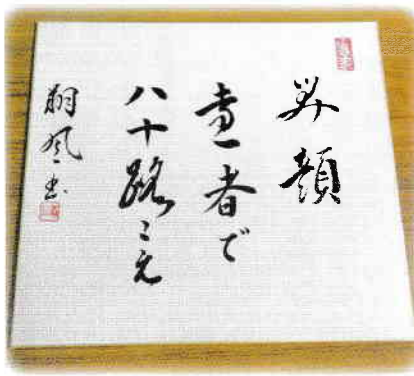 笑顔
達者で
八十路こえ
翔風書